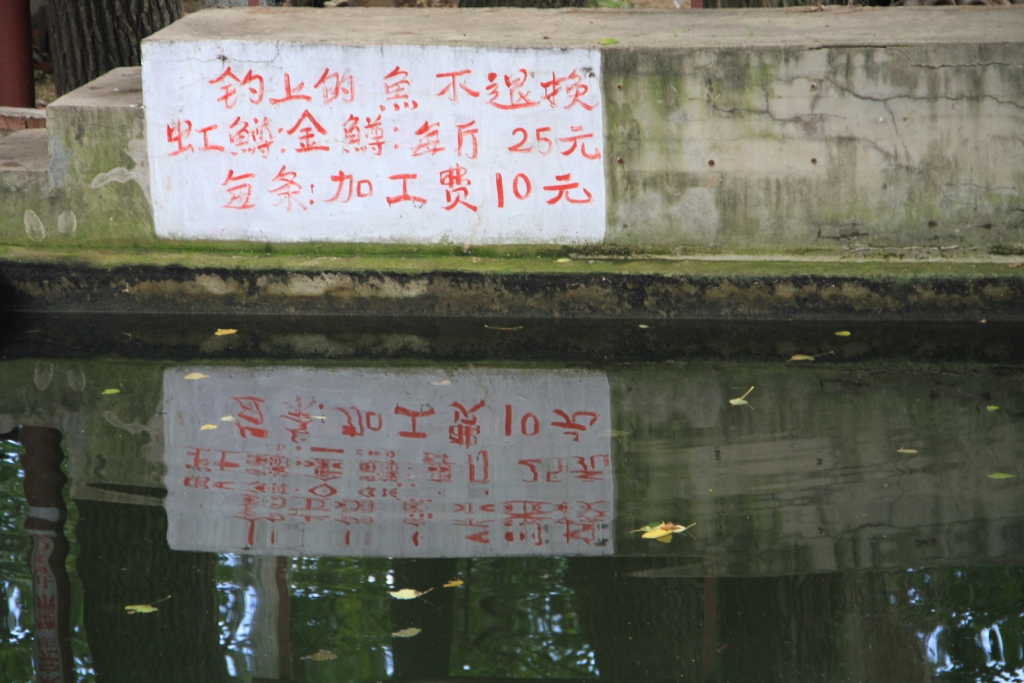 钓上的魚不退换
虹鳟:金鳟:每斤 25元
每条:加工费10元